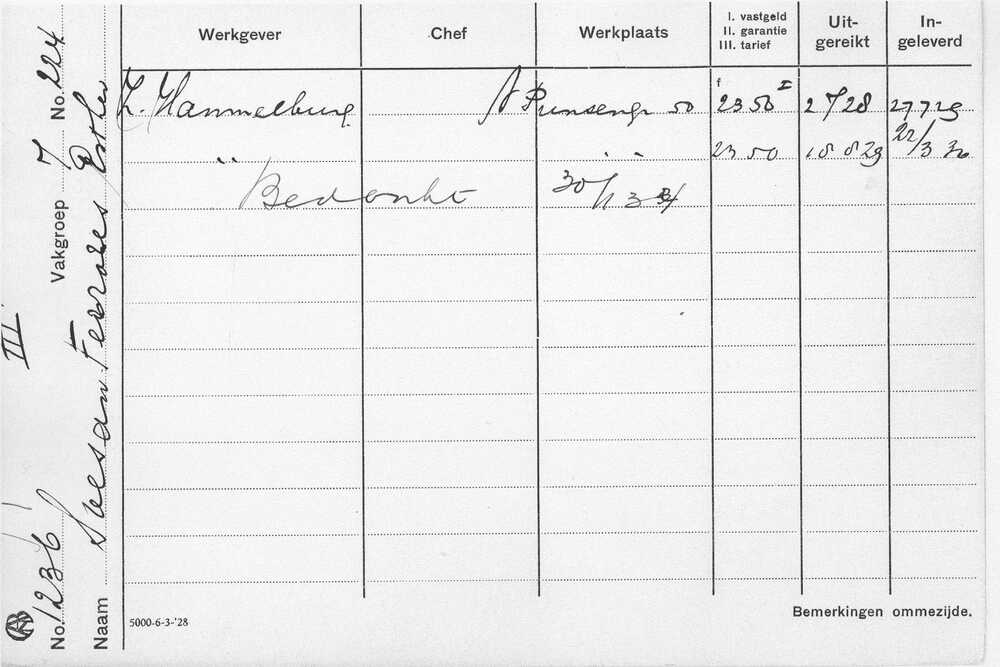 No. 1236 Vakgroep 7 No. 224
III
Naam Soesan Ferrares Esther
Werkgever Chef Werkplaats I. vastgeld II. garantie III. tarief Uit-gereikt In-geleverd
Z. Hammelburg Prinsengr 50 f 23 50 I 2 7 28 27 7 29
" " 23 50 18 8 29 22/3 30
Bedankt 30/1 34
5000-6-3-'28
Bemerkingen ommezijde.